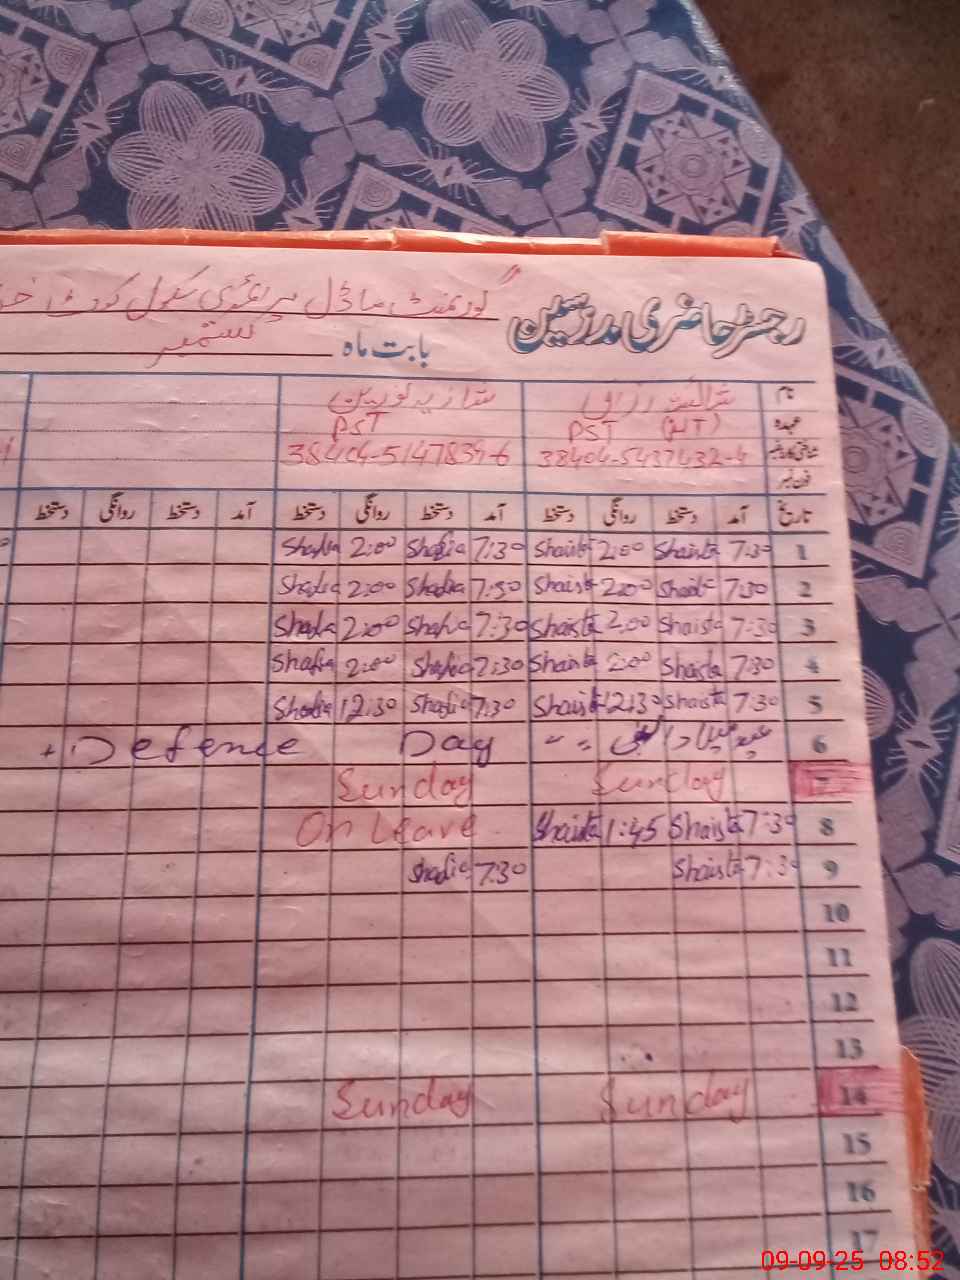 رجسٹر حاضری مدرسین گورنمنٹ ماڈل پرائمری سکول کوٹ
بابت ماہ ستمبر
نام شائستہ رزاق شازیہ نورین
عہدہ PST (HT) PST
شناختی کارڈ نمبر 38404-5437432-4 38404-5147839-6
فون نمبر
تاریخ آمد دستخط روانگی دستخط آمد دستخط روانگی دستخط آمد دستخط روانگی دستخط
1 7:30 Shaista 2:00 Shaista 7:30 Shazia 2:00 Shazia
2 7:30 Shaista 2:00 Shaista 7:30 Shazia 2:00 Shazia
3 7:30 Shaista 2:00 Shaista 7:30 Shazia 2:00 Shazia
4 7:30 Shaista 2:00 Shaista 7:30 Shazia 2:00 Shazia
5 7:30 Shaista 12:30 Shaista 7:30 Shazia 12:30 Shazia
6 عید میلاد النبی + Defence Day
7 Sunday Sunday
8 7:30 Shaista 1:45 Shaista On Leave
9 7:30 Shaista 7:30 Shazia
10
11
12
13
14 Sunday Sunday
15
16
17
09-09-25 08:52